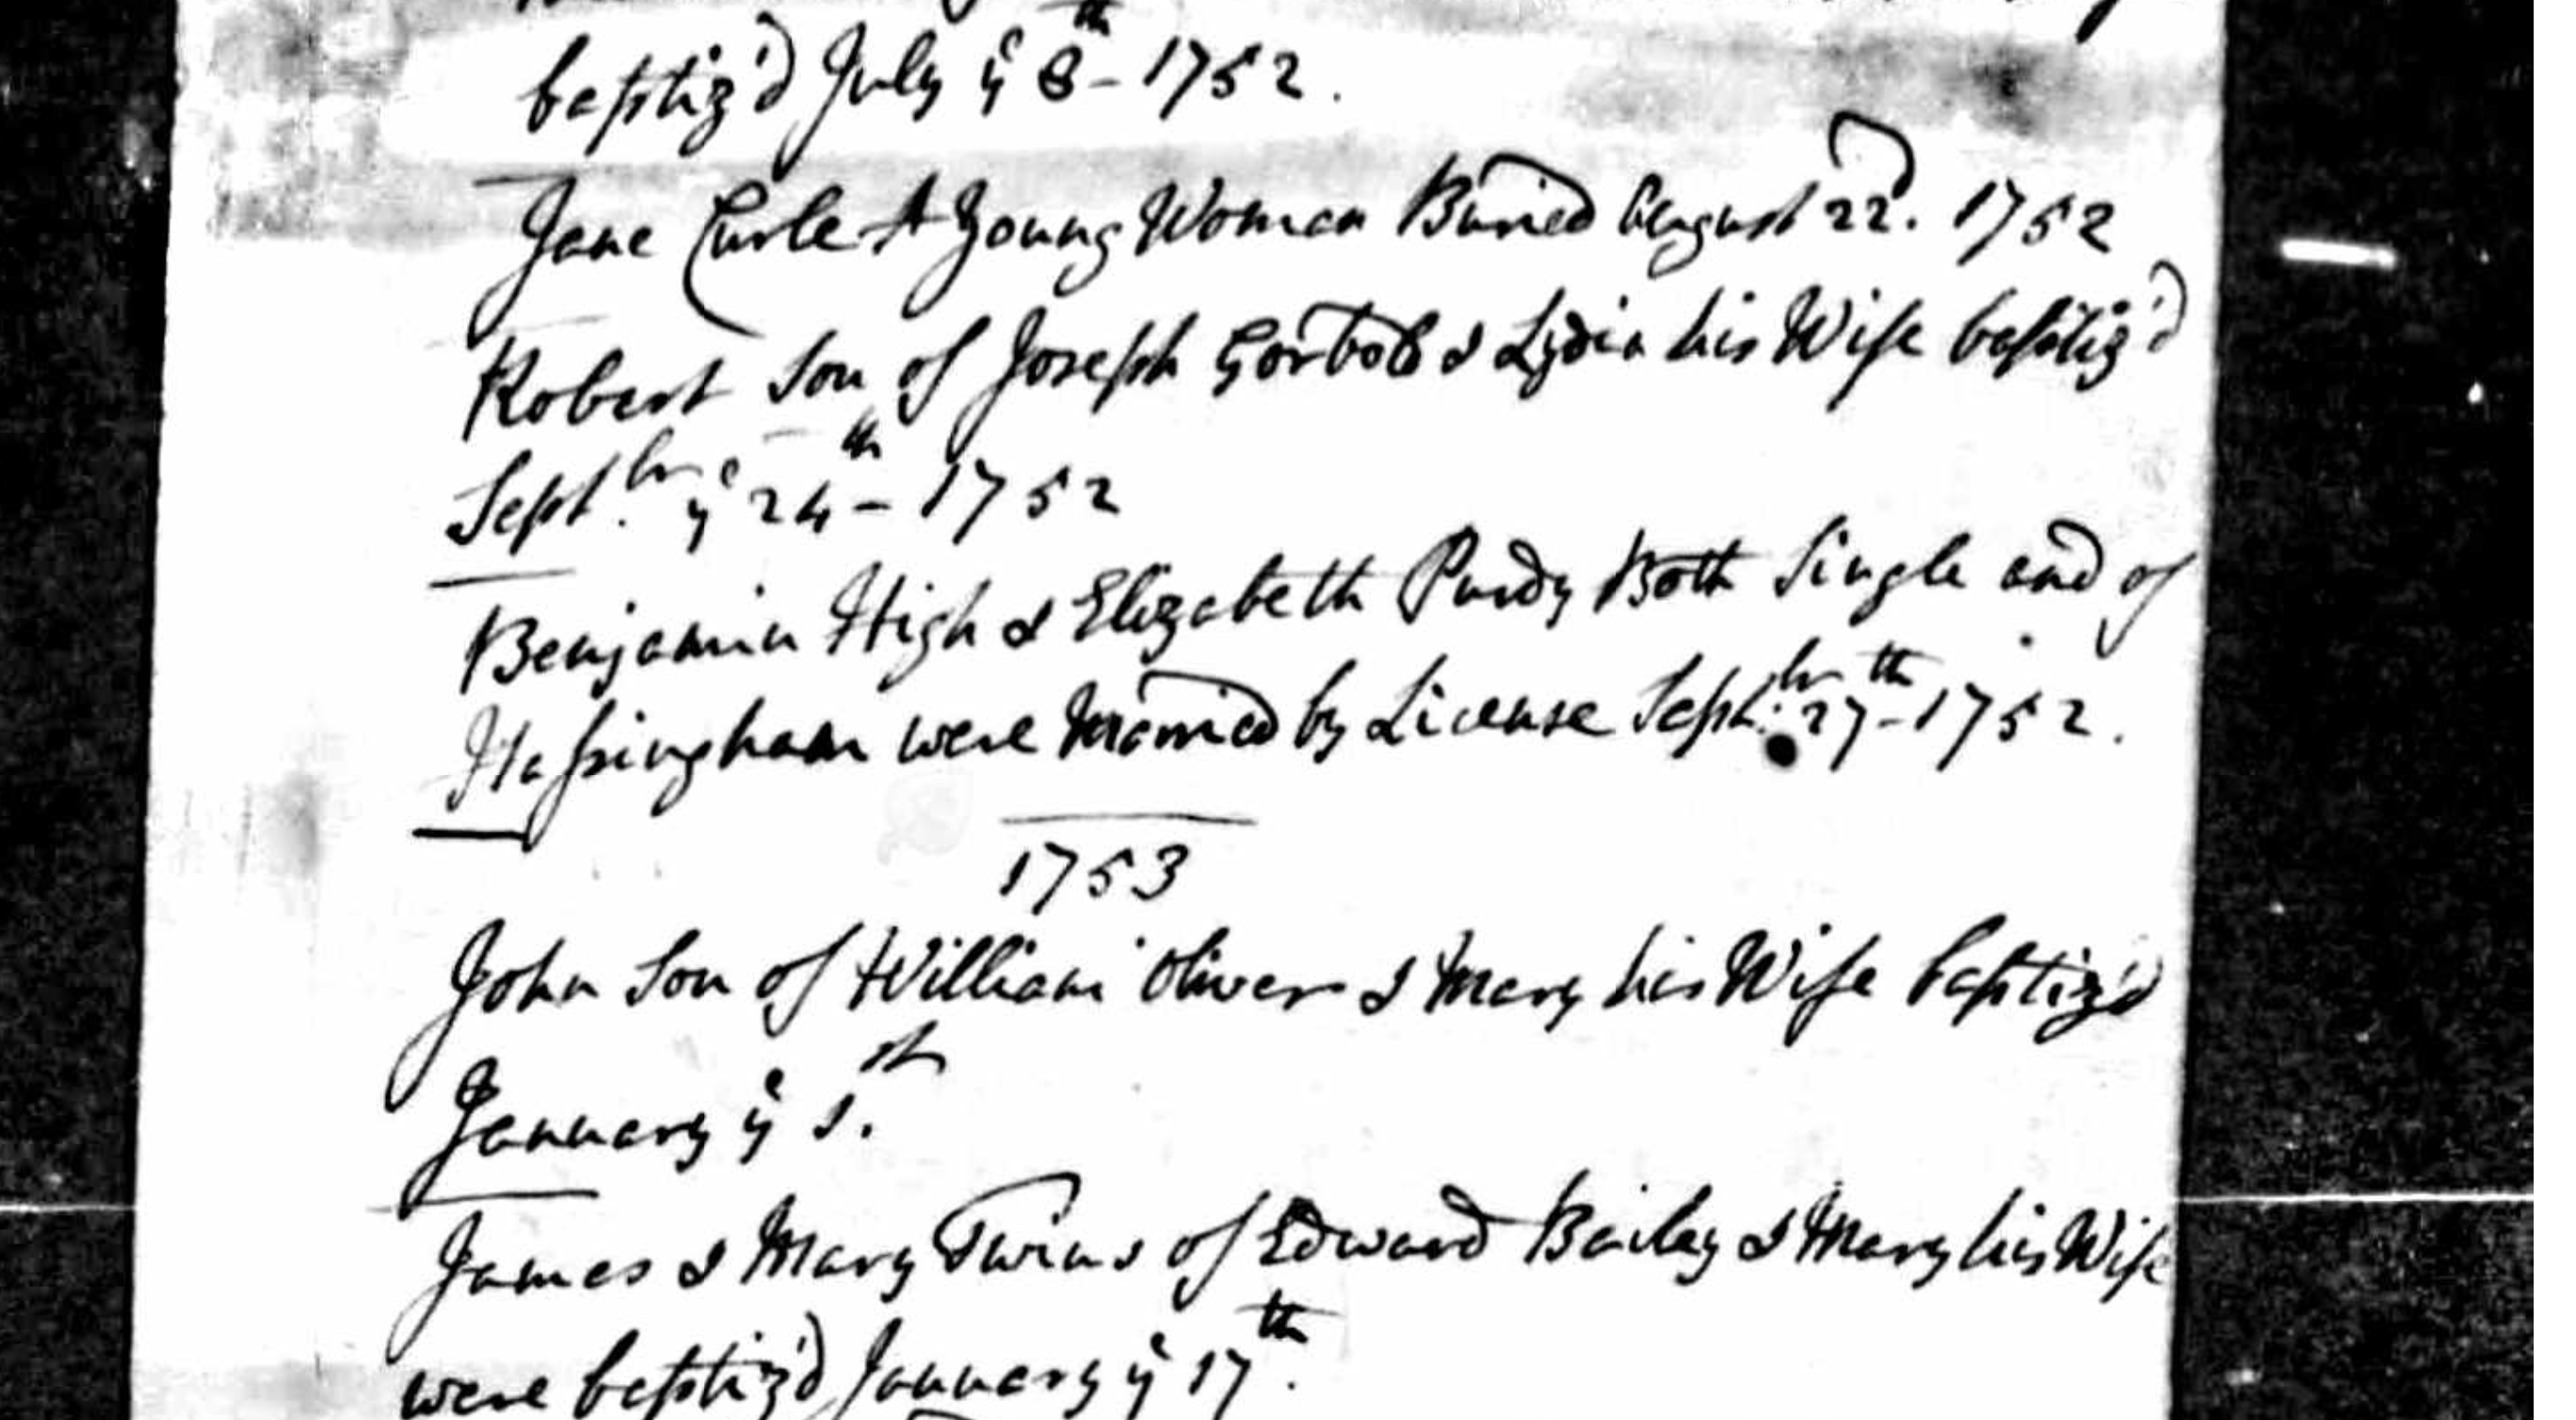 baptiz'd July yᵉ 8ᵗʰ - 1752.
Jane Curle A Young Woman Buried August 22ᵈ. 1752
Robert Son of Joseph & Lydia his Wife baptiz'd
Septᵇʳ. yᵉ 24ᵗʰ - 1752
Benjamin High & Elizabeth Purdy Both Single and of
Haſsingham were Married by License Septᵇʳ. 27ᵗʰ - 1752.
1753
John Son of William Oliver & Mary his Wife baptiz'd
January yᵉ 1ˢᵗ.
James & Mary Twins of Edward Bailey & Mary his Wife
were baptiz'd January yᵉ 17ᵗʰ.